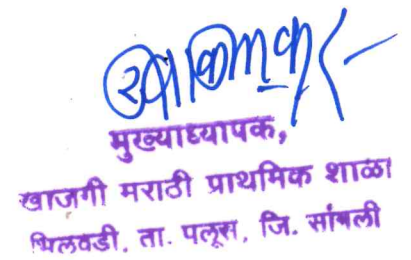 मुख्याध्यापक,
खाजगी मराठी प्राथमिक शाळा
भिलवडी, ता. पलूस, जि. सांगली